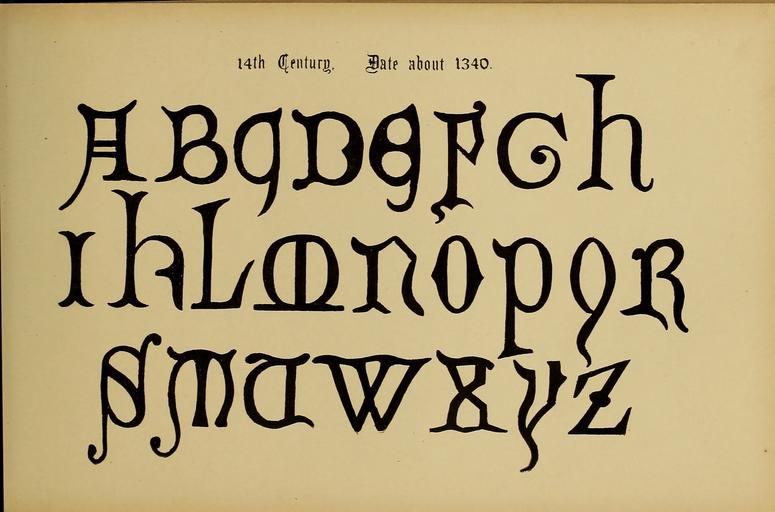 14th Century. Date about 1340.
A B C D E F G h
I K L M N O P Q R
S T U W X Y Z